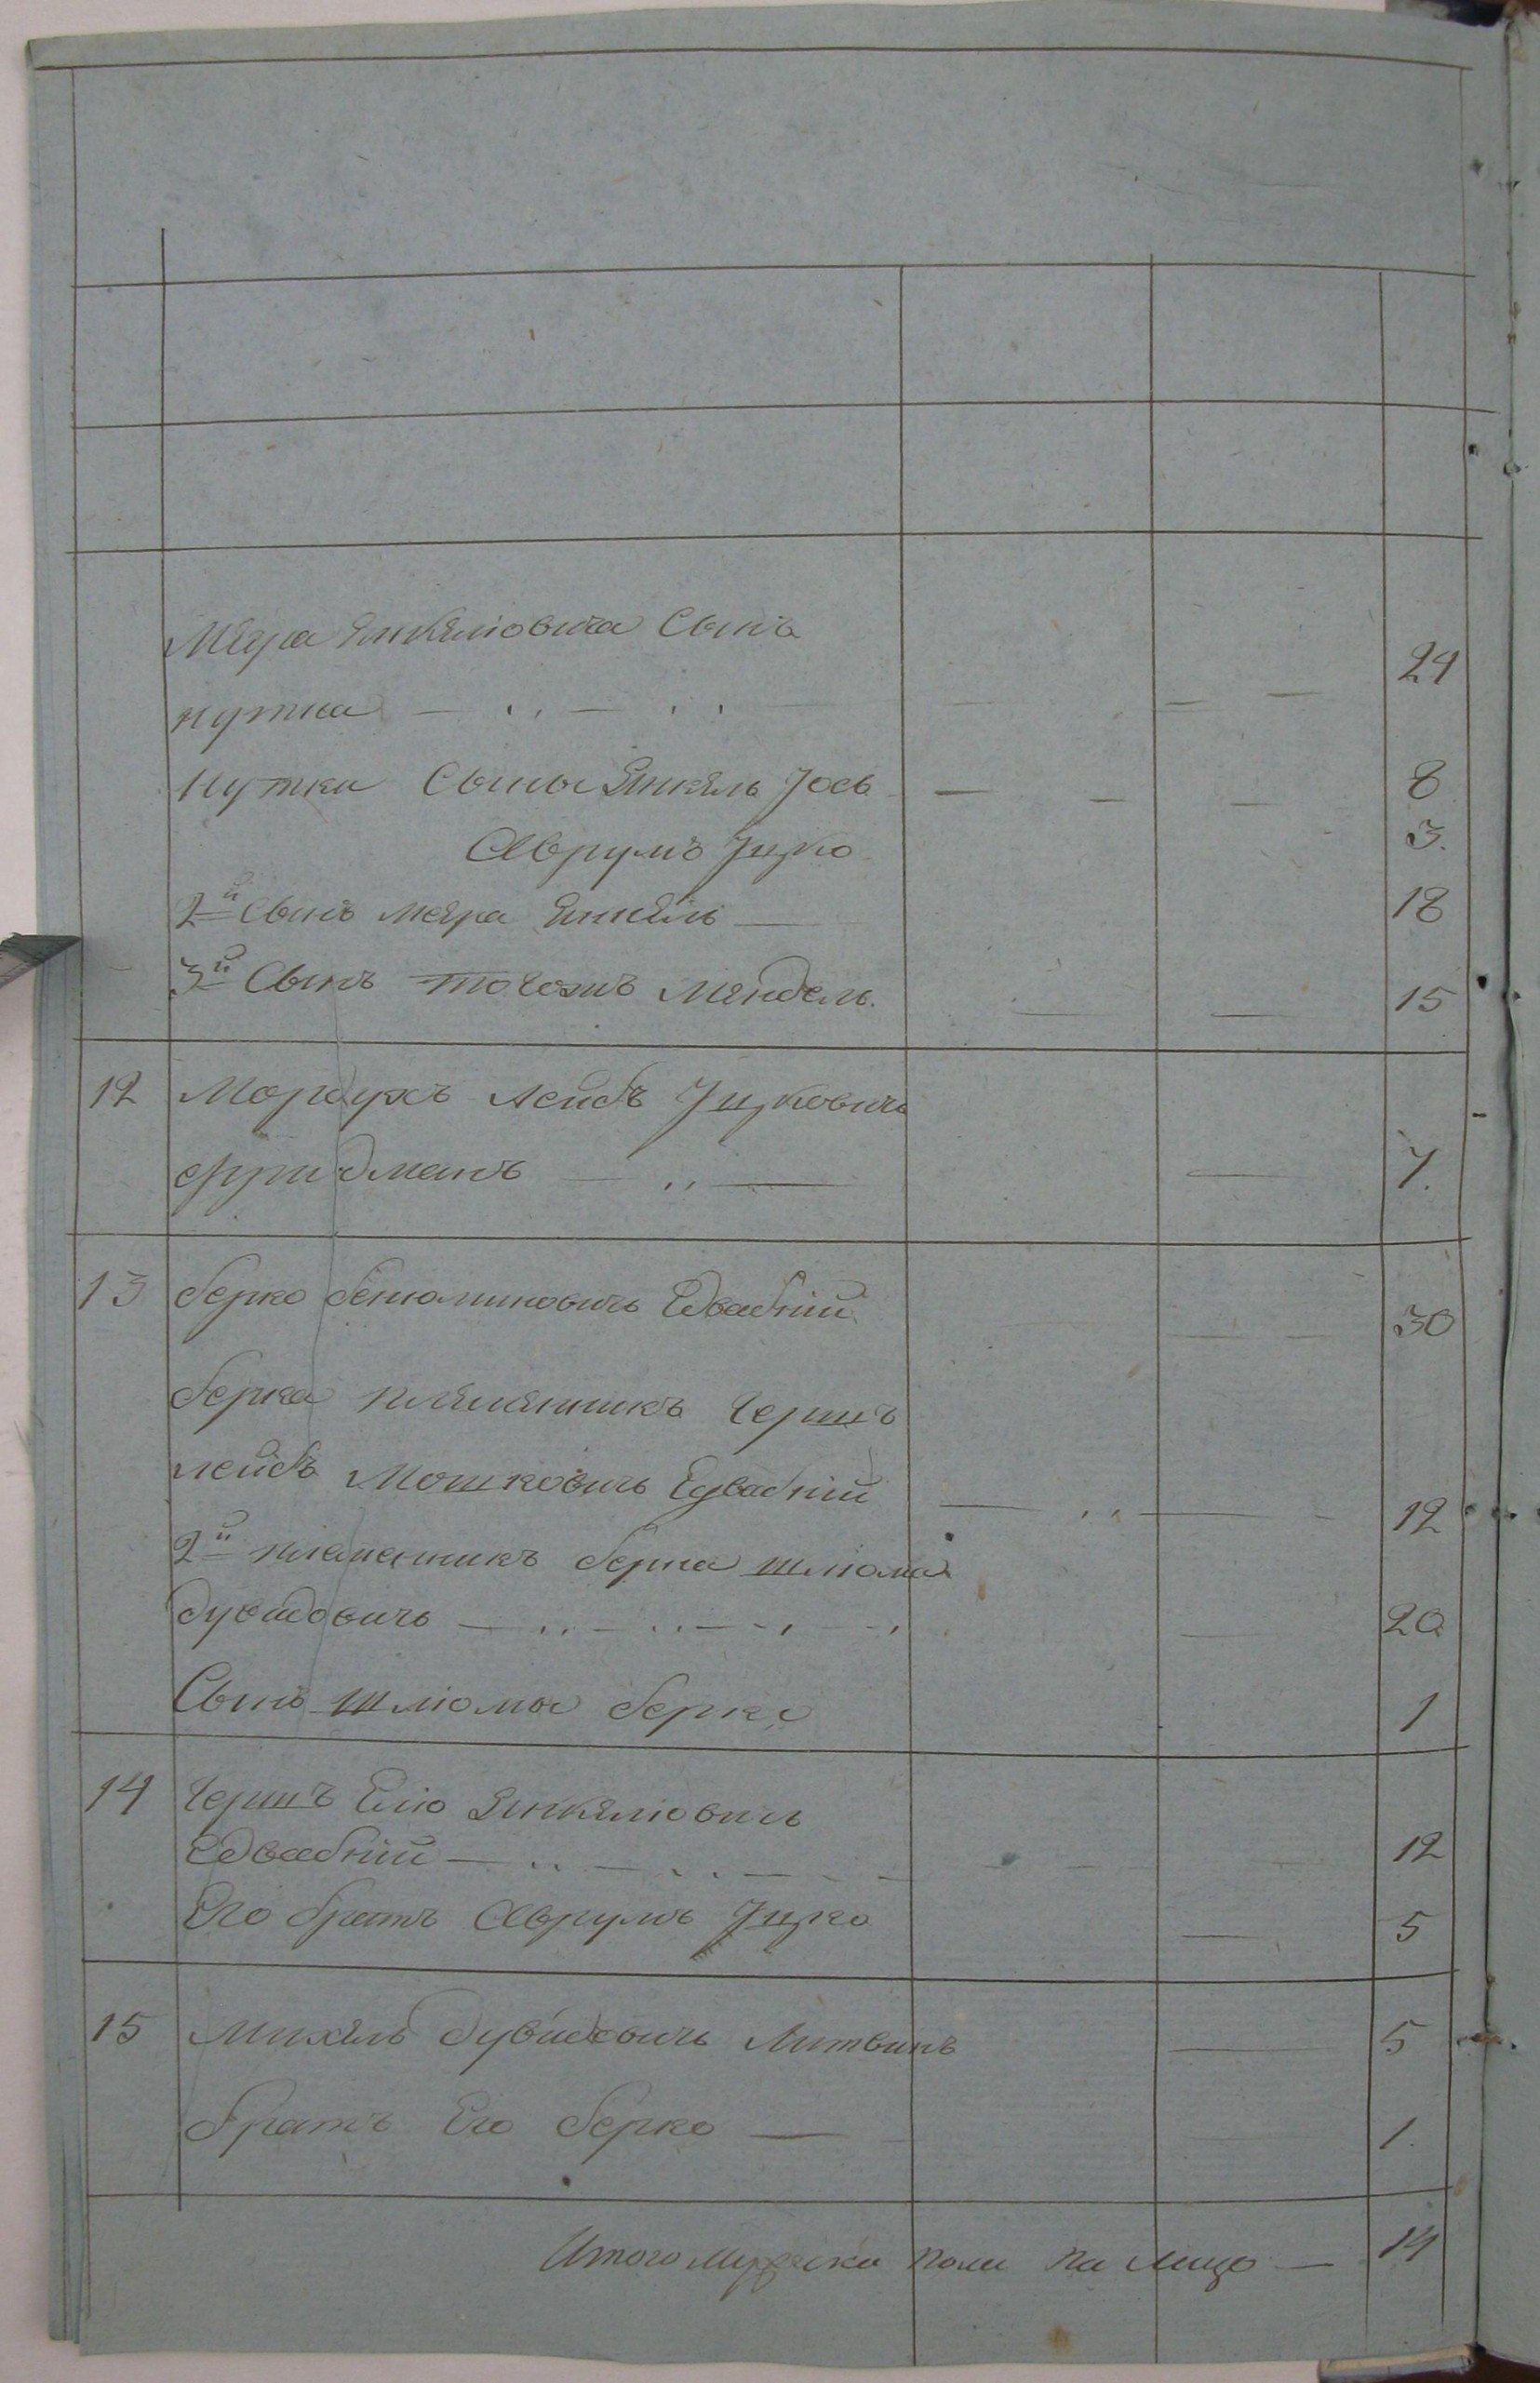 Меера Янкелiовича Сынъ
нутка — ‚‚ — ‚‚ — 24
Нутки Сыны Янкель Iось — 8
Аврумъ Iцко 3.
2й Сынъ меера Янкель — 18
3й Сынъ тогожъ Мендель. — 15
12 Мордухъ лейбъ Iцковичь
фридманъ — ‚‚ — 7.
13 берко бенюминовичь Едвабнiй — 30
берка племянникъ Гершъ
лейбъ Мошковичь Едвабнiй — ‚‚ — 12
2й племянникъ берка шлiома
дувидовичь — ‚‚ — ‚‚ — 20
Сынъ шлiомы берко 1
14 Гершъ Елiо Янкелiовичь
Едвабнiй — ‚‚ — ‚‚ — 12
Его братъ Аврумъ Iцко — 5
15 Михель дувидовичь Литвинъ — 5
братъ Его берко — 1.
Итого мужеска пола на лицо — 14